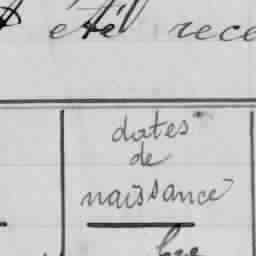 été rece
dates
de
naissance
bre